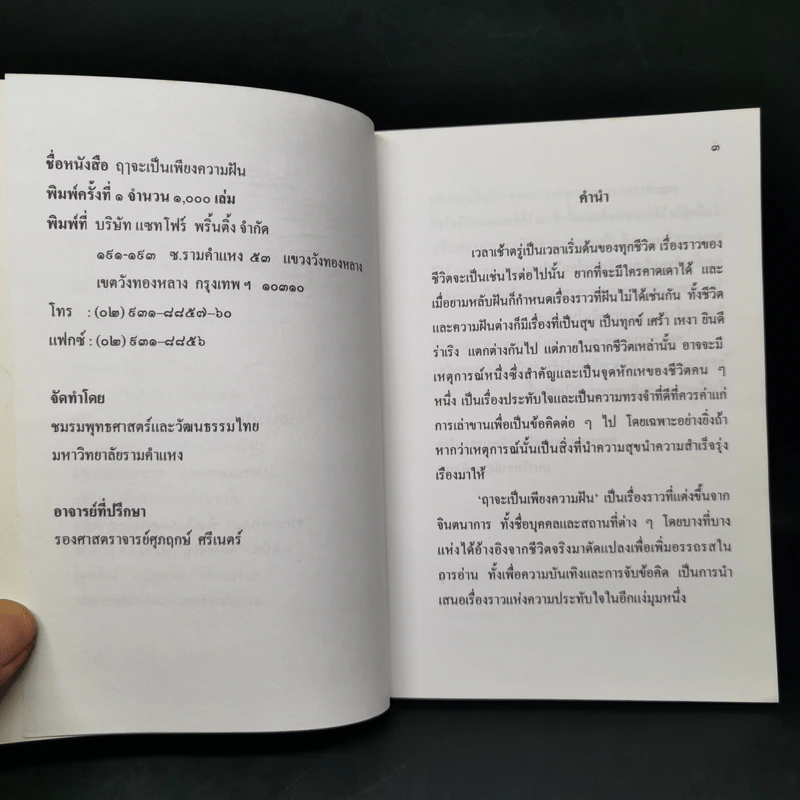 ชื่อหนังสือ ฤๅจะเป็นเพียงความฝัน
พิมพ์ครั้งที่ ๑ จำนวน ๑,๐๐๐ เล่ม
พิมพ์ที่ บริษัท แซทโฟร์ พริ้นติ้ง จำกัด
๑๙๑-๑๙๓ ซ.รามคำแหง ๕๓ แขวงวังทองหลาง
เขตวังทองหลาง กรุงเทพ ฯ ๑๐๓๑๐
โทร : (๐๒) ๙๓๑-๘๘๕๗-๖๐
แฟกซ์ : (๐๒) ๙๓๑-๘๘๕๖
จัดทำโดย
ชมรมพุทธศาสตร์และวัฒนธรรมไทย
มหาวิทยาลัยรามคำแหง
อาจารย์ที่ปรึกษา
รองศาสตราจารย์ศุภฤกษ์ ศรีเนตร์
๓
คำนำ
เวลาเช้าตรู่เป็นเวลาเริ่มต้นของทุกชีวิต เรื่องราวของ
ชีวิตจะเป็นเช่นไรต่อไปนั้น ยากที่จะมีใครคาดเดาได้ และ
เมื่อยามหลับฝันก็กำหนดเรื่องราวที่ฝันไม่ได้เช่นกัน ทั้งชีวิต
และความฝันต่างก็มีเรื่องที่เป็นสุข เป็นทุกข์ เศร้า เหงา ยินดี
ร่าเริง แตกต่างกันไป แต่ภายในฉากชีวิตเหล่านั้น อาจจะมี
เหตุการณ์หนึ่งซึ่งสำคัญและเป็นจุดหักเหของชีวิตคน ๆ
หนึ่ง เป็นเรื่องประทับใจและเป็นความทรงจำที่ดีที่ควรค่าแก่
การเล่าขานเพื่อเป็นข้อคิดต่อ ๆ ไป โดยเฉพาะอย่างยิ่งถ้า
หากว่าเหตุการณ์นั้นเป็นสิ่งที่นำความสุขนำความสำเร็จรุ่ง
เรืองมาให้
'ฤๅจะเป็นเพียงความฝัน' เป็นเรื่องราวที่แต่งขึ้นจาก
จินตนาการ ทั้งชื่อบุคคลและสถานที่ต่าง ๆ โดยบางที่บาง
แห่งได้อ้างอิงจากชีวิตจริงมาดัดแปลงเพื่อเพิ่มอรรถรสใน
การอ่าน ทั้งเพื่อความบันเทิงและการจับข้อคิด เป็นการนำ
เสนอเรื่องราวแห่งความประทับใจในอีกแง่มุมหนึ่ง